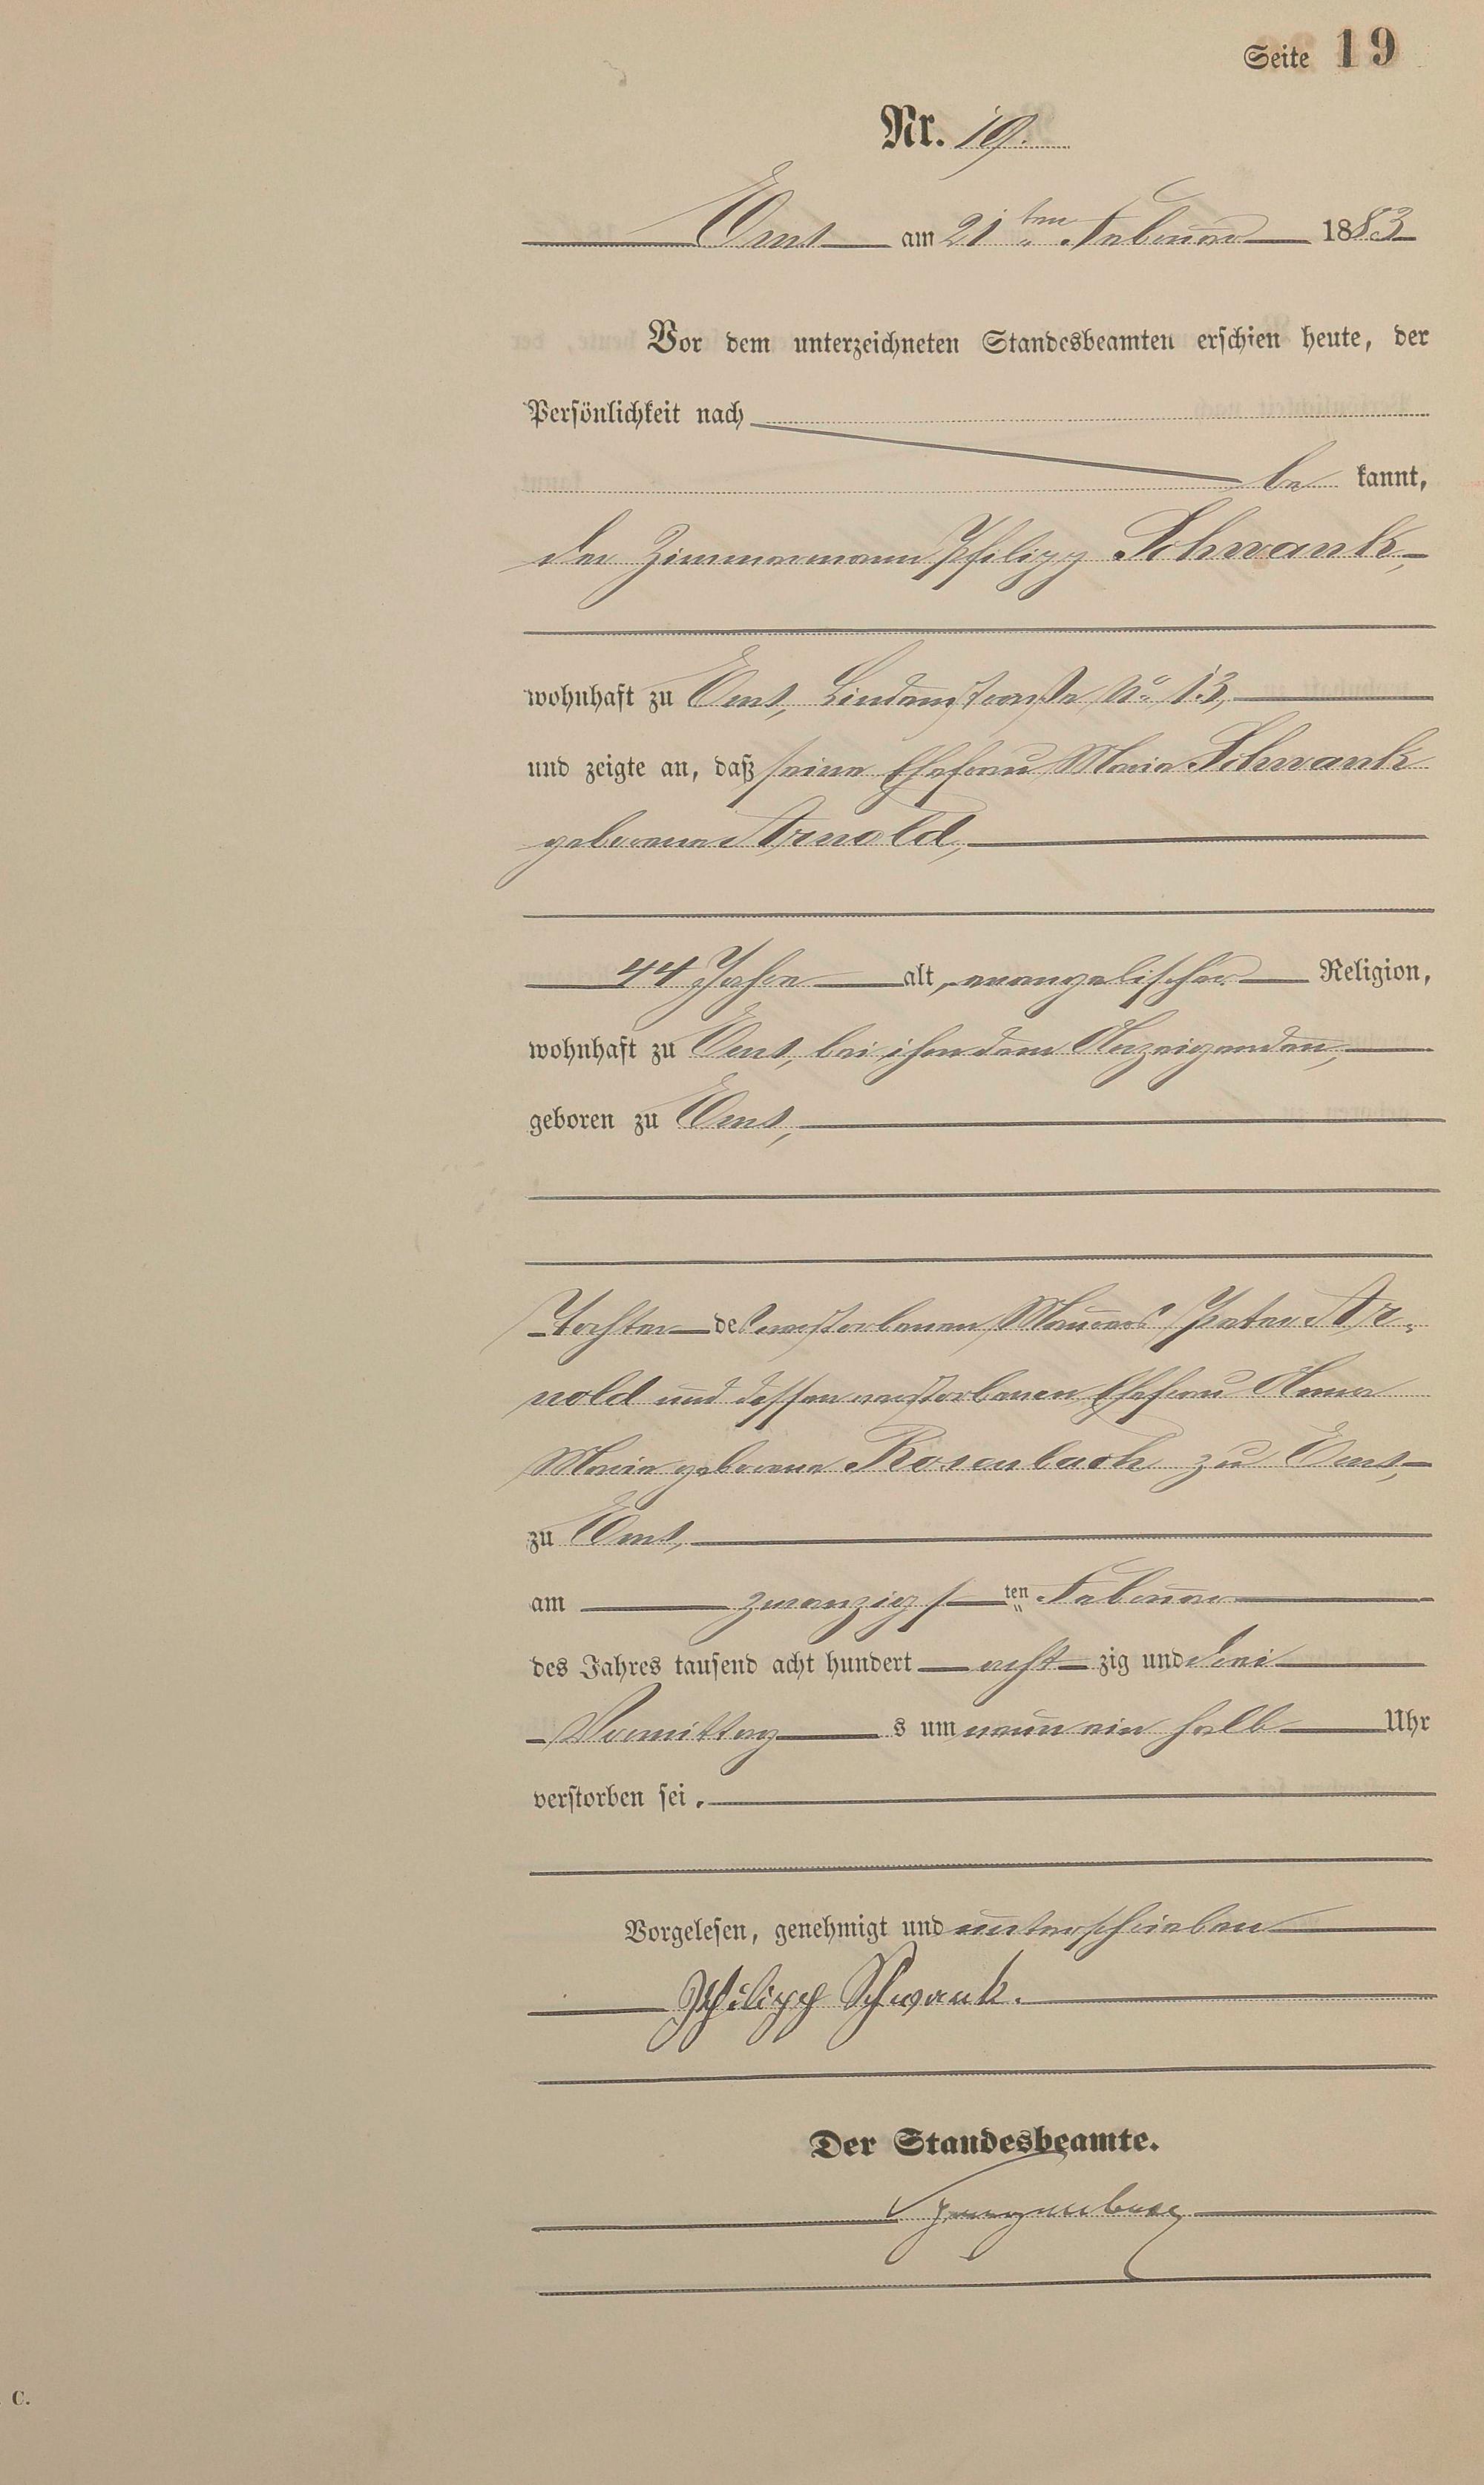 Seite 19
Nr. 19.
Ems am 21ten Februar 1883
Vor dem unterzeichneten Standesbeamten erschien heute, der
Persönlichkeit nach
be kannt,
der Zimmermann Philipp Schwank,
wohnhaft zu Ems, Lindenstraße No 13,
und zeigte an, daß seine Ehefrau Maria Schwank
geborene Arnold,
44 Jahre alt, evangelischer Religion,
wohnhaft zu Ems, bei ihm dem Anzeigenden,
geboren zu Ems,
Tochter des verstorbenen Maurers Peter Ar-
nold und dessen verstorbenen Ehefrau Anna
Maria geborene Rosenbach zu Ems,
zu Ems,
am zwanzigsten Februar
des Jahres tausend acht hundert acht zig und drei
Vormittag s um neun ein halb Uhr
verstorben sei.
Vorgelesen, genehmigt und unterschrieben
Philipp Schwank.
Der Standesbeamte.
C.